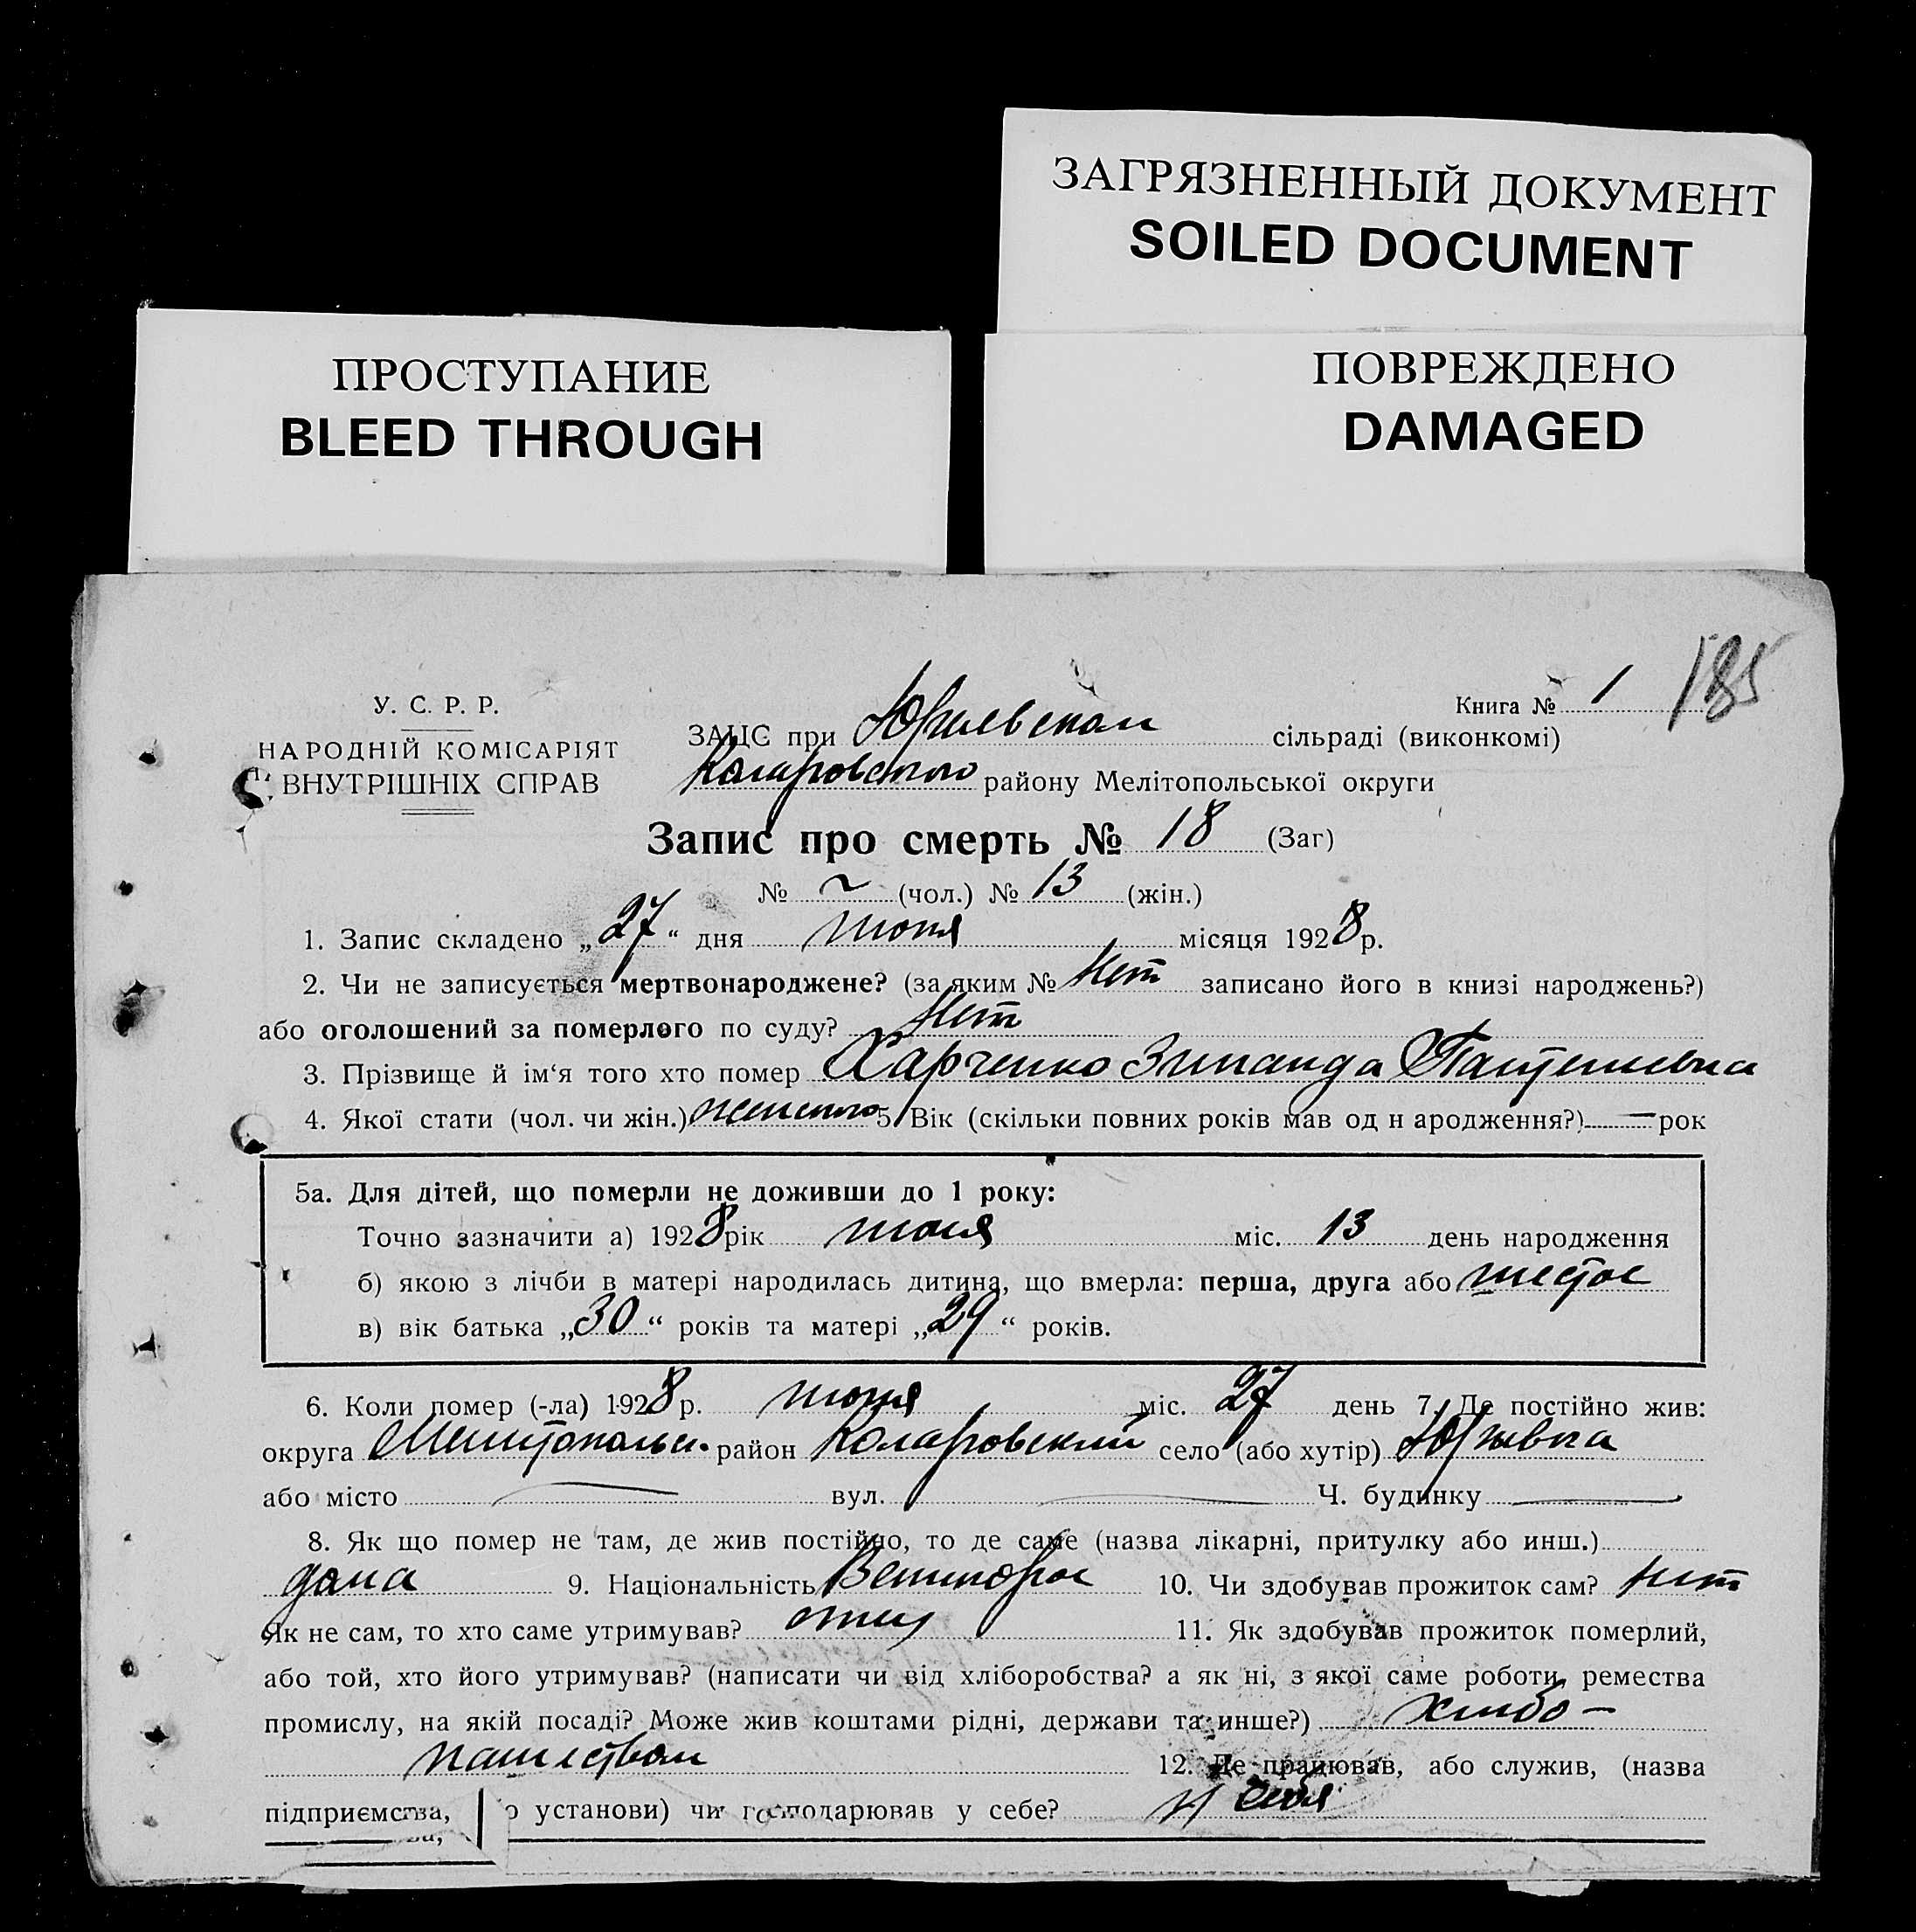 ЗАГРЯЗНЕННЫЙ ДОКУМЕНТ
SOILED DOCUMENT
ПРОСТУПАНИЕ
BLEED THROUGH
ПОВРЕЖДЕНО
DAMAGED
185
Книга № 1
У. С. Р. Р.
НАРОДНІЙ КОМІСАРІЯТ
ВНУТРІШНІХ СПРАВ
ЗАЦС при Юрьевском сільраді (виконкомі)
Коларовского району Мелітопольської округи
Запис про смерть № 18 (Заг)
№ ~ (чол.) № 13 (жін.)
1. Запис складено „27“ дня июня місяця 1928 р.
2. Чи не записується мертвонароджене? (за яким № Нет записано його в книзі народжень?)
або оголошений за померлого по суду? Нет
3. Прізвище й ім‘я того хто помер Харченко Зинаида Пантелеевна
4. Якої стати (чол. чи жін.) женского 5. Вік (скільки повних років мав од н ародження?) — рок
5а. Для дітей, що померли не доживши до 1 року:
Точно зазначити а) 1928 рік июня міс. 13 день народження
б) якою з лічби в матері народилась дитина, що вмерла: перша, друга або шестое
в) вік батька „30“ років та матері „29“ років.
6. Коли помер (-ла) 1928 р. июня міс. 27 день 7. Де постійно жив:
округа Мелитопольс. район Коларовский село (або хутір) Юрьевка
або місто — вул. — Ч. будинку —
8. Як що помер не там, де жив постійно, то де саме (назва лікарні, притулку або инш.)
дома 9. Національність Великорос 10. Чи здобував прожиток сам? нет
Як не сам, то хто саме утримував? отец 11. Як здобував прожиток померлий,
або той, хто його утримував? (написати чи від хліборобства? а як ні, з якої саме роботи, ремества
промислу, на якій посаді? Може жив коштами рідні, держави та инше?) хлебо-
пашеством 12. Де працював, або служив, (назва
підприємства, о установи) чи господарював у себе? у себя